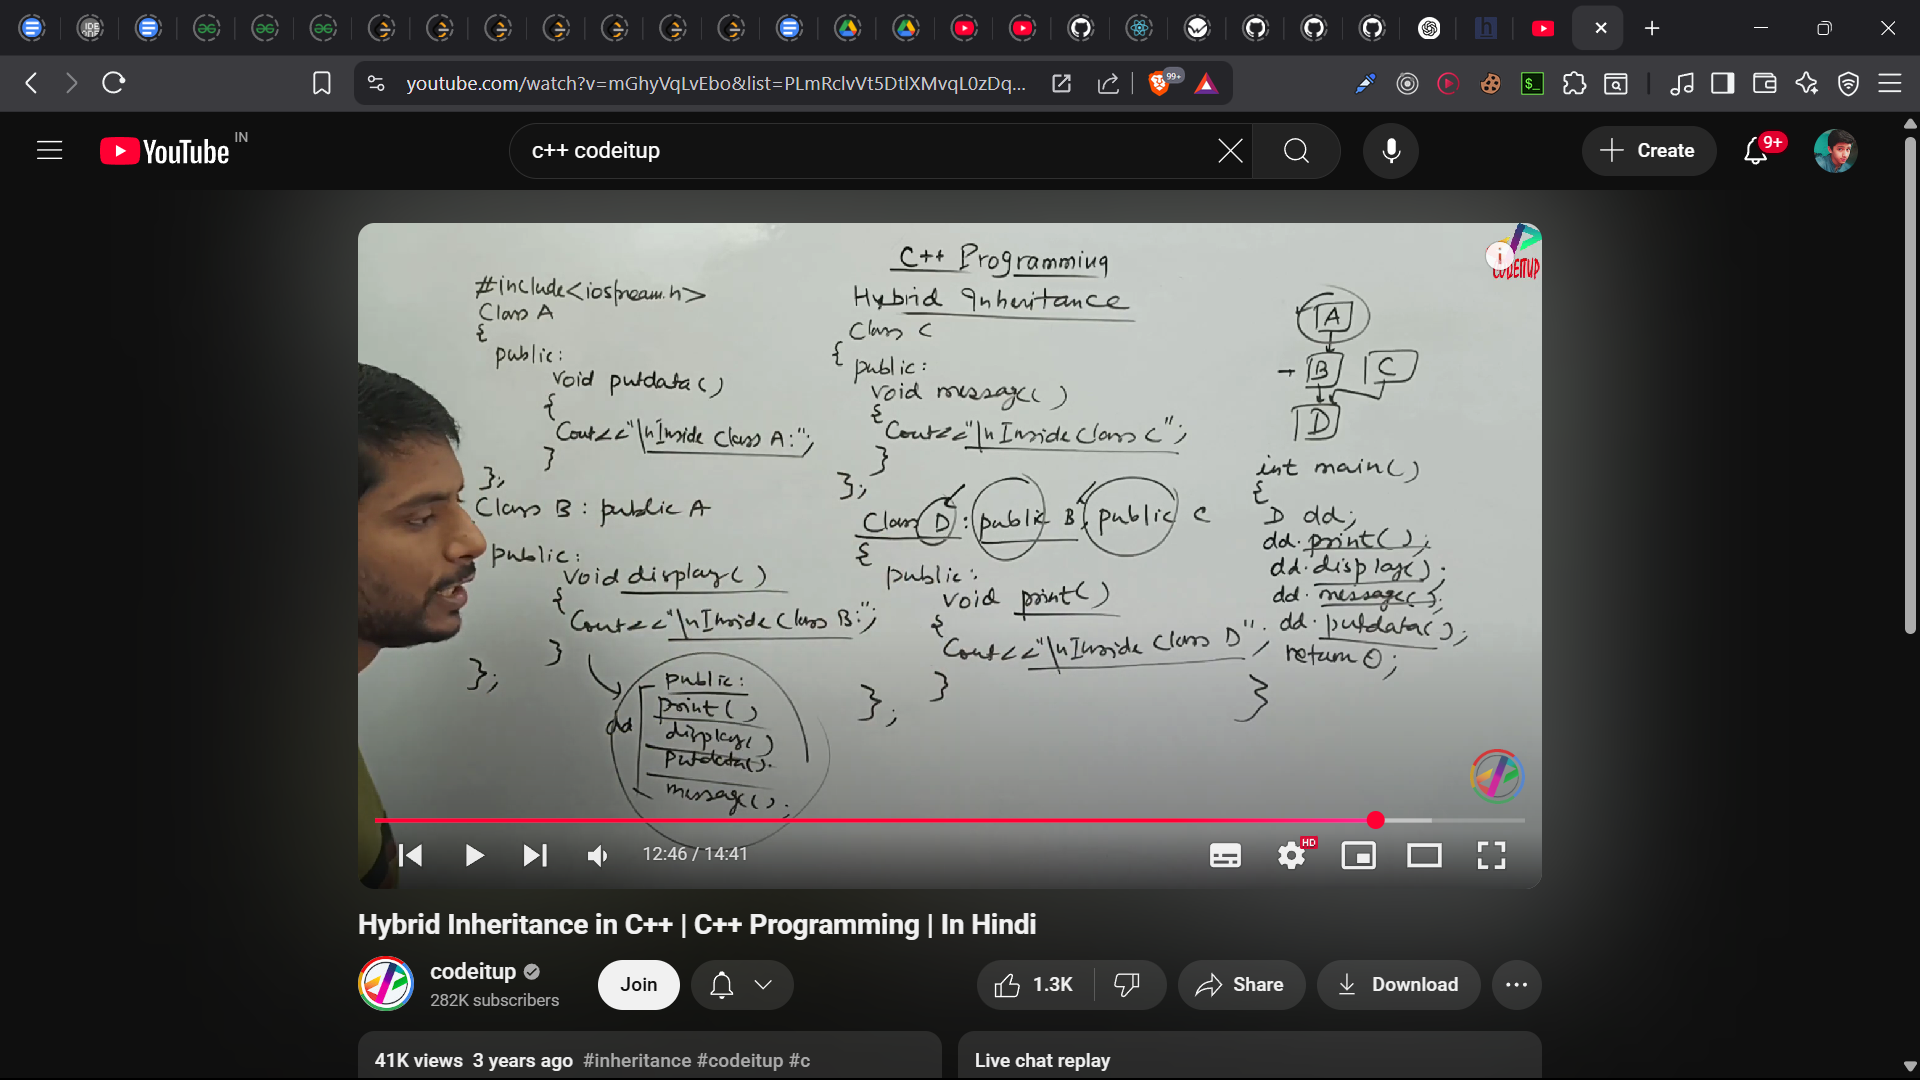 youtube.com/watch?v=mGhyVqLvEbo&list=PLmRclvVt5DtlXMvqL0zDq...
99+
YouTube IN
c++ codeitup
Create
9+
C++ Programming
Hybrid Inheritance
#include<iostream.h>
Class A
{
public:
void putdata()
{
Cout<<"\nInside Class A:";
}
};
Class B : public A
public:
void display()
{
Cout<<"\nInside Class B:";
}
};
public:
dd
print()
display()
Putdata().
message().
Class C
{
public:
void message()
{
Cout<<"\nInside Class C";
}
};
Class D : public B, public C
{
public:
void print()
{
Cout<<"\nInside Class D";
}
};
A
B
C
D
int main()
{
D dd;
dd.print();
dd.display();
dd.message();
dd.putdata();
return 0;
}
i
CODEITUP
12:46 / 14:41
HD
Hybrid Inheritance in C++ | C++ Programming | In Hindi
codeitup
282K subscribers
Join
1.3K
Share
Download
41K views 3 years ago #inheritance #codeitup #c
Live chat replay